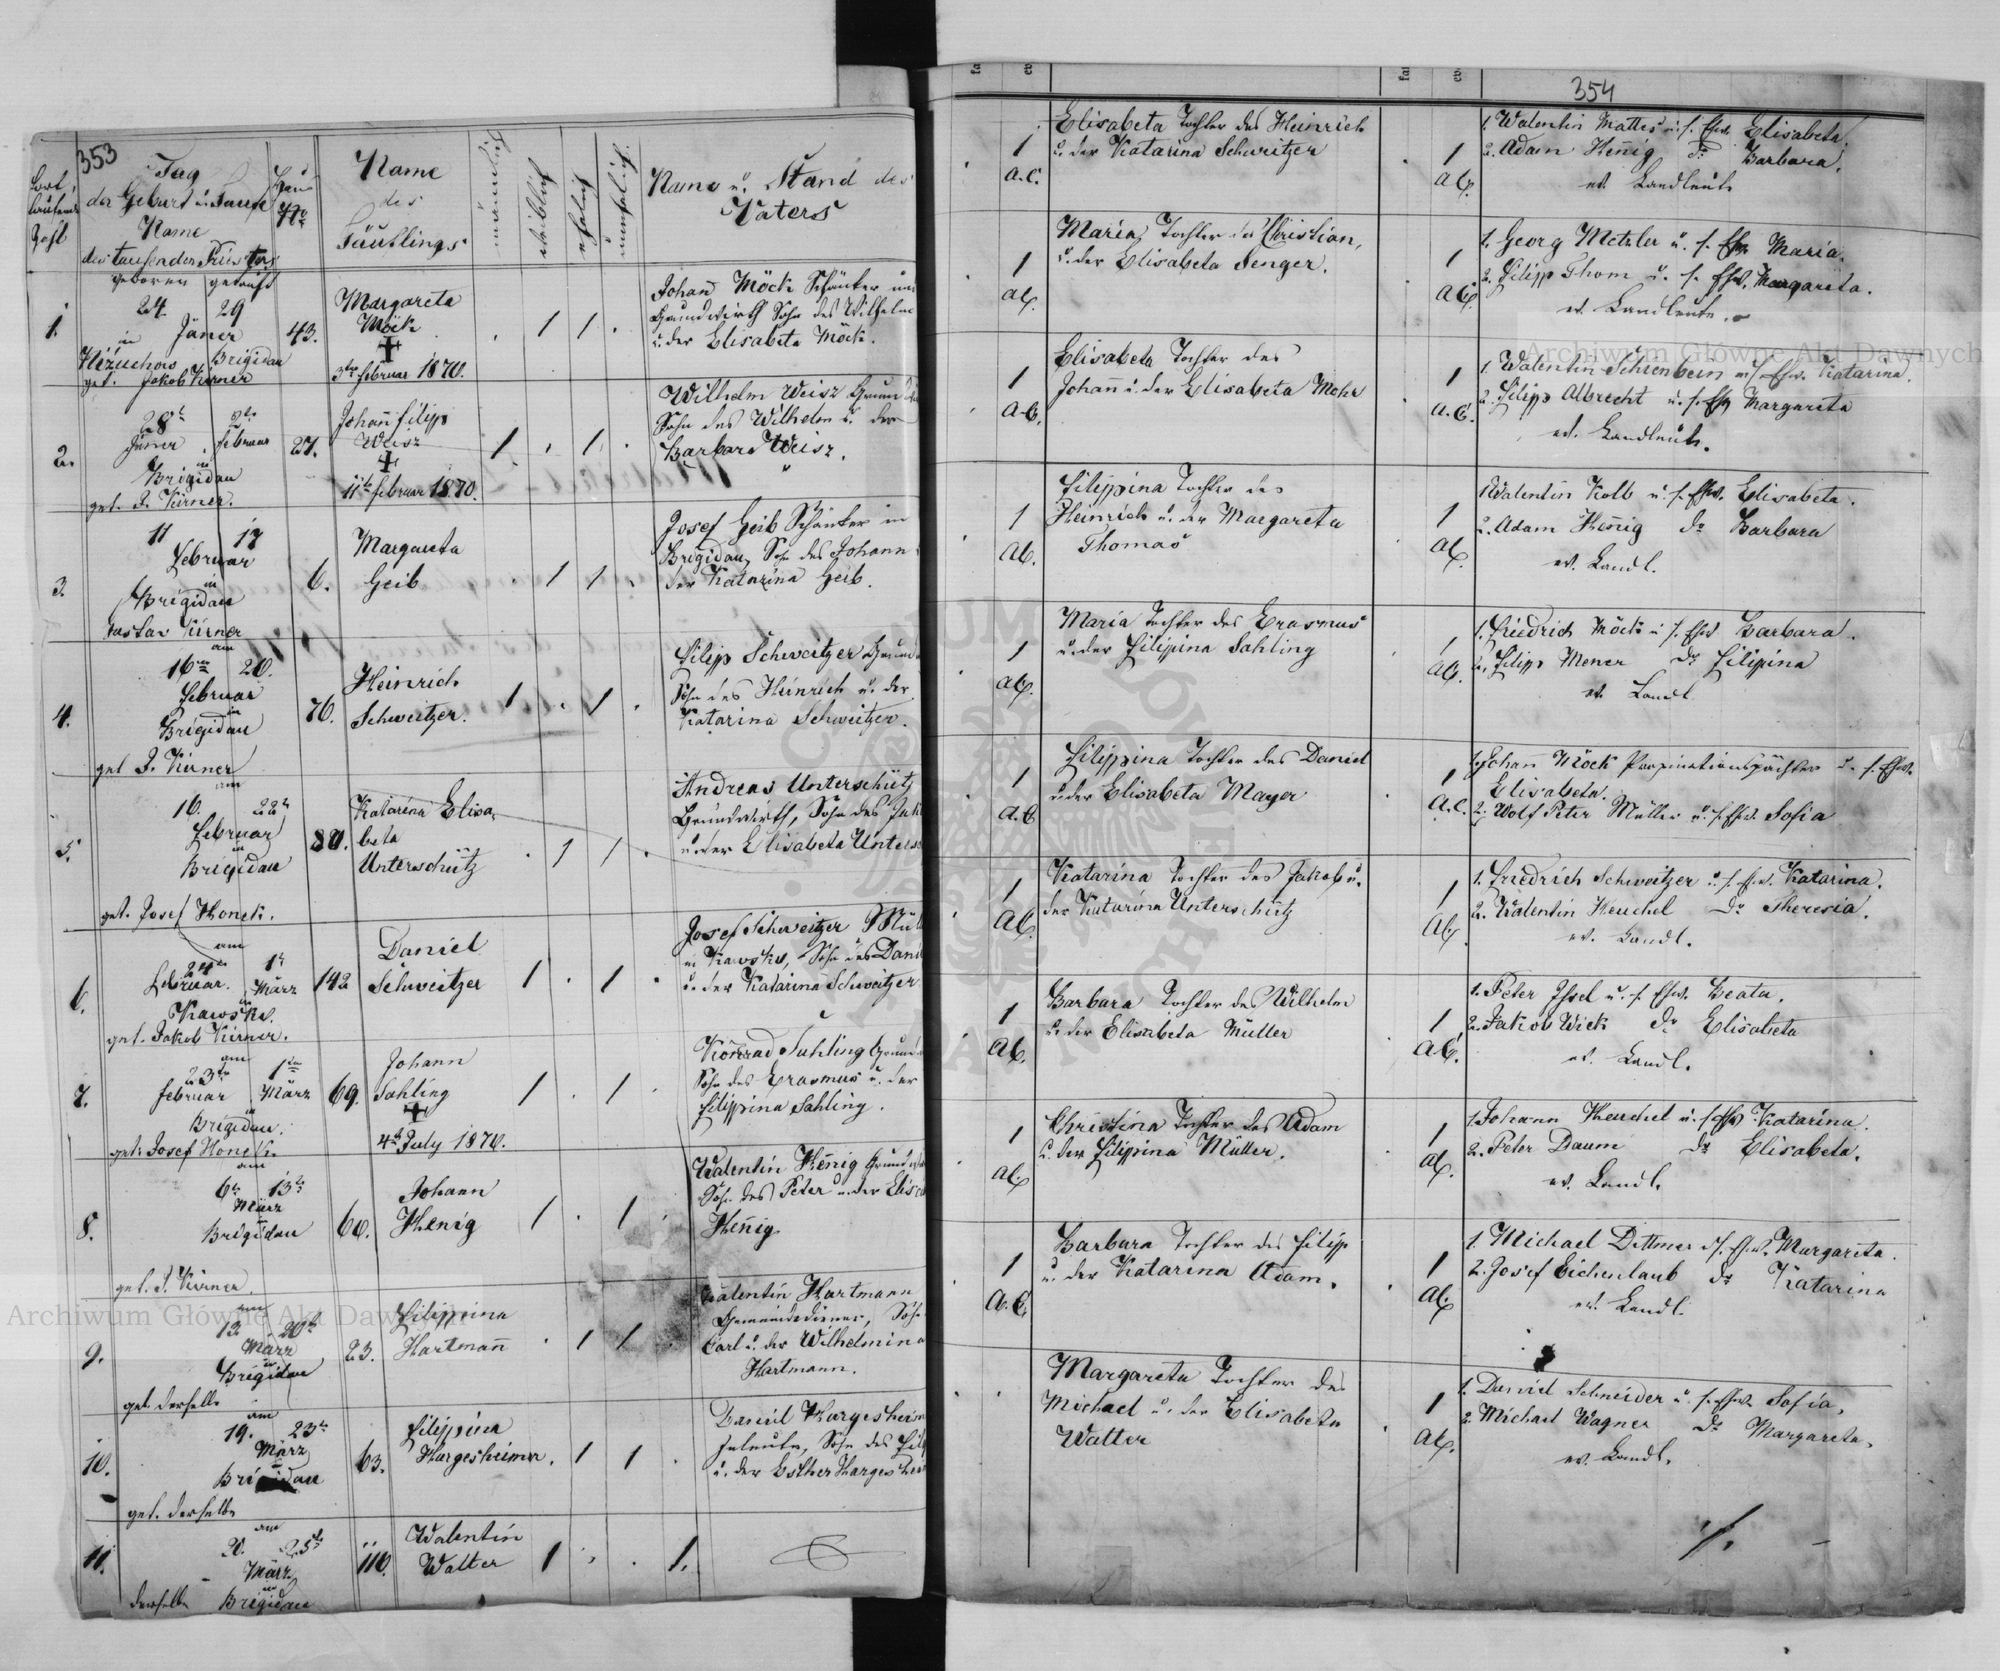 353
Fort-
laufende
Zahl
Tag
der Geburt u. Taufe
Name
des taufenden Priesters
geboren getauft
Haus
Nro
Name
des
Täuflings
männlich
weiblich
ehelich
unehelich
Name u. Stand des
Vaters
1.
24. 29
Jäner
in
Brigidau
get. Jakob Kirner
43.
Margareta
Möck
3ten Februar 1870.
1 1
Johann Möck Schänker und
Grundwirth Sohn des Wilhelm
u. der Elisabeta Möck.
2.
28t
Jäner Februar
in
Brigidau
get. J. Kirner.
27.
Johann Filipp
Weisz
11te Februar 1870.
1 1
Wilhelm Weisz
Sohn des Wilhelm u. der
Barbara Weisz.
3.
11 17
Februar
in
Brigidau
Gustav Kirner
6.
Margareta
Geib
1 1
Josef Geib Schänker in
Brigidau, Sohn des Johann
der Katarina Geib.
4.
am
16ten 20.
Februar
in
Brigidau
get J. Kirner
76.
Heinrich
Schweitzer.
1 1
Filipp Schweitzer
Sohn des Heinrich u. der
Katarina Schweitzer.
5.
am
16. 22t
Februar
in
Brigidau
get. Josef Honek.
80.
Katarina Elisa-
beta
Unterschütz
1 1
Andreas Unterschütz
Grundwirth, Sohn des
u. der Elisabeta
6.
am
24ten 1t
Februar. März
in
Kawsko.
get. Jakob Kirner.
142
Daniel
Schweitzer
1 1
Josef Schweitzer
in Kawsko, Sohn des
u. der Katarina Schweitzer
7.
am
23ten 1ten
Februar März
in
Brigidau.
get. Josef Honek.
69.
Johann
Sahling
4t July 1870.
1 1
Konrad Sahling
Sohn des Erasmus u. der
Filippina Sahling.
8.
am
6te 13te
März
in
Brigidau
get. J. Kirner.
60.
Johann
Henig
1 1
Walentin Henig
Sohn des Peter u. der
Henig
9.
am
13. 20t
März
in
Brigidau
get. derselbe
23.
Filippina
Hartmann
1 1
Walentin Hartmann
Gemeindediener, Sohn
Carl u. der Wilhelmina
Hartmann.
10.
am
19. 23t
März
in
Brigidau
get. derselbe
63.
Filippina
Hargesheimer.
1 1
Daniel
Sohn des
u. der Esther
11.
am
2. 25te
März
in
Brigidau
derselbe
110.
Walentin
Walter
1 1.
354
Elisabeta Tochter des Heinrich
u. der Katarina Schweitzer
1
a.C.
1
aC.
1. Walentin Mattes u. s. Ehw. Elisabeta.
2. Adam Henig do Barbara.
ev. Landleute
Maria, Tochter des Christian,
u. der Elisabeta Senger.
1
aC.
1
aC.
1. Georg Metzler u. s. Ehw. Maria.
2. Filipp Thom u. s. Ehw. Margareta.
ev. Landleute.
Elisabeta Tochter des
Johann u. der Elisabeta Mohr
1
a.C.
1
a.C.
1. Walentin Schrenbern u. s. Ehw. Katarina.
2. Filipp Albrecht u. s. Ehw. Margareta
ev. Landleute.
Filippina Tochter des
Heinrich u. der Margareta
Thomas
1
aC.
1
aC.
1 Walentin Kolb u. s. Ehw. Elisabeta.
2. Adam Henig do Barbara
ev. Landl.
Maria Tochter des Erasmus
u. der Filippina Sahling
1
aC.
1
aC.
1. Friedrich Möck u. s. Ehw Barbara.
2. Filipp Mener do Filipina
ev. Landl
Filippina Tochter des Daniel
u. der Elisabeta Mayer
1
a.C.
1
a.C.
1. Johann Möck Propinationspächter u. s. Ehw.
Elisabeta.
2. Wolf Peter Müller u. s. Ehw. Sofia
Katarina Tochter des Jakob u.
der Katarina Unterschütz
1
aC.
1
aC.
1. Friedrich Schweitzer u. s. Ehw. Katarina.
2. Walentin Heuchel do Theresia.
ev. Landl.
Barbara Tochter des Wilhelm
u. der Elisabeta Müller
1
aC.
1
aC.
1. Peter Issel u. s. Ehw. Beata.
2. Jakob Wick do Elisabeta
ev. Landl.
Christina Tochter des Adam
u. der Filippina Müller.
1
aC.
1
aC.
1. Johann Heuchel u. s. Ehw. Katarina.
2. Peter Daum do Elisabeta.
ev. Landl.
Barbara Tochter des Filipp
u. der Katarina Adam.
1
a.C.
1
aC.
1. Michael Dittmer u. s. Ehw. Margareta.
2. Josef Eichenlaub do Katarina
ev. Landl.
Margareta Tochter des
Michael u. der Elisabeta
Walter
1
aC.
1. Daniel Schneider u. s. Ehw. Sofia.
2. Michael Wagner do Margareta.
ev. Landl.
Archiwum Główne Akt Dawnych
Archiwum Główne Akt Dawnych